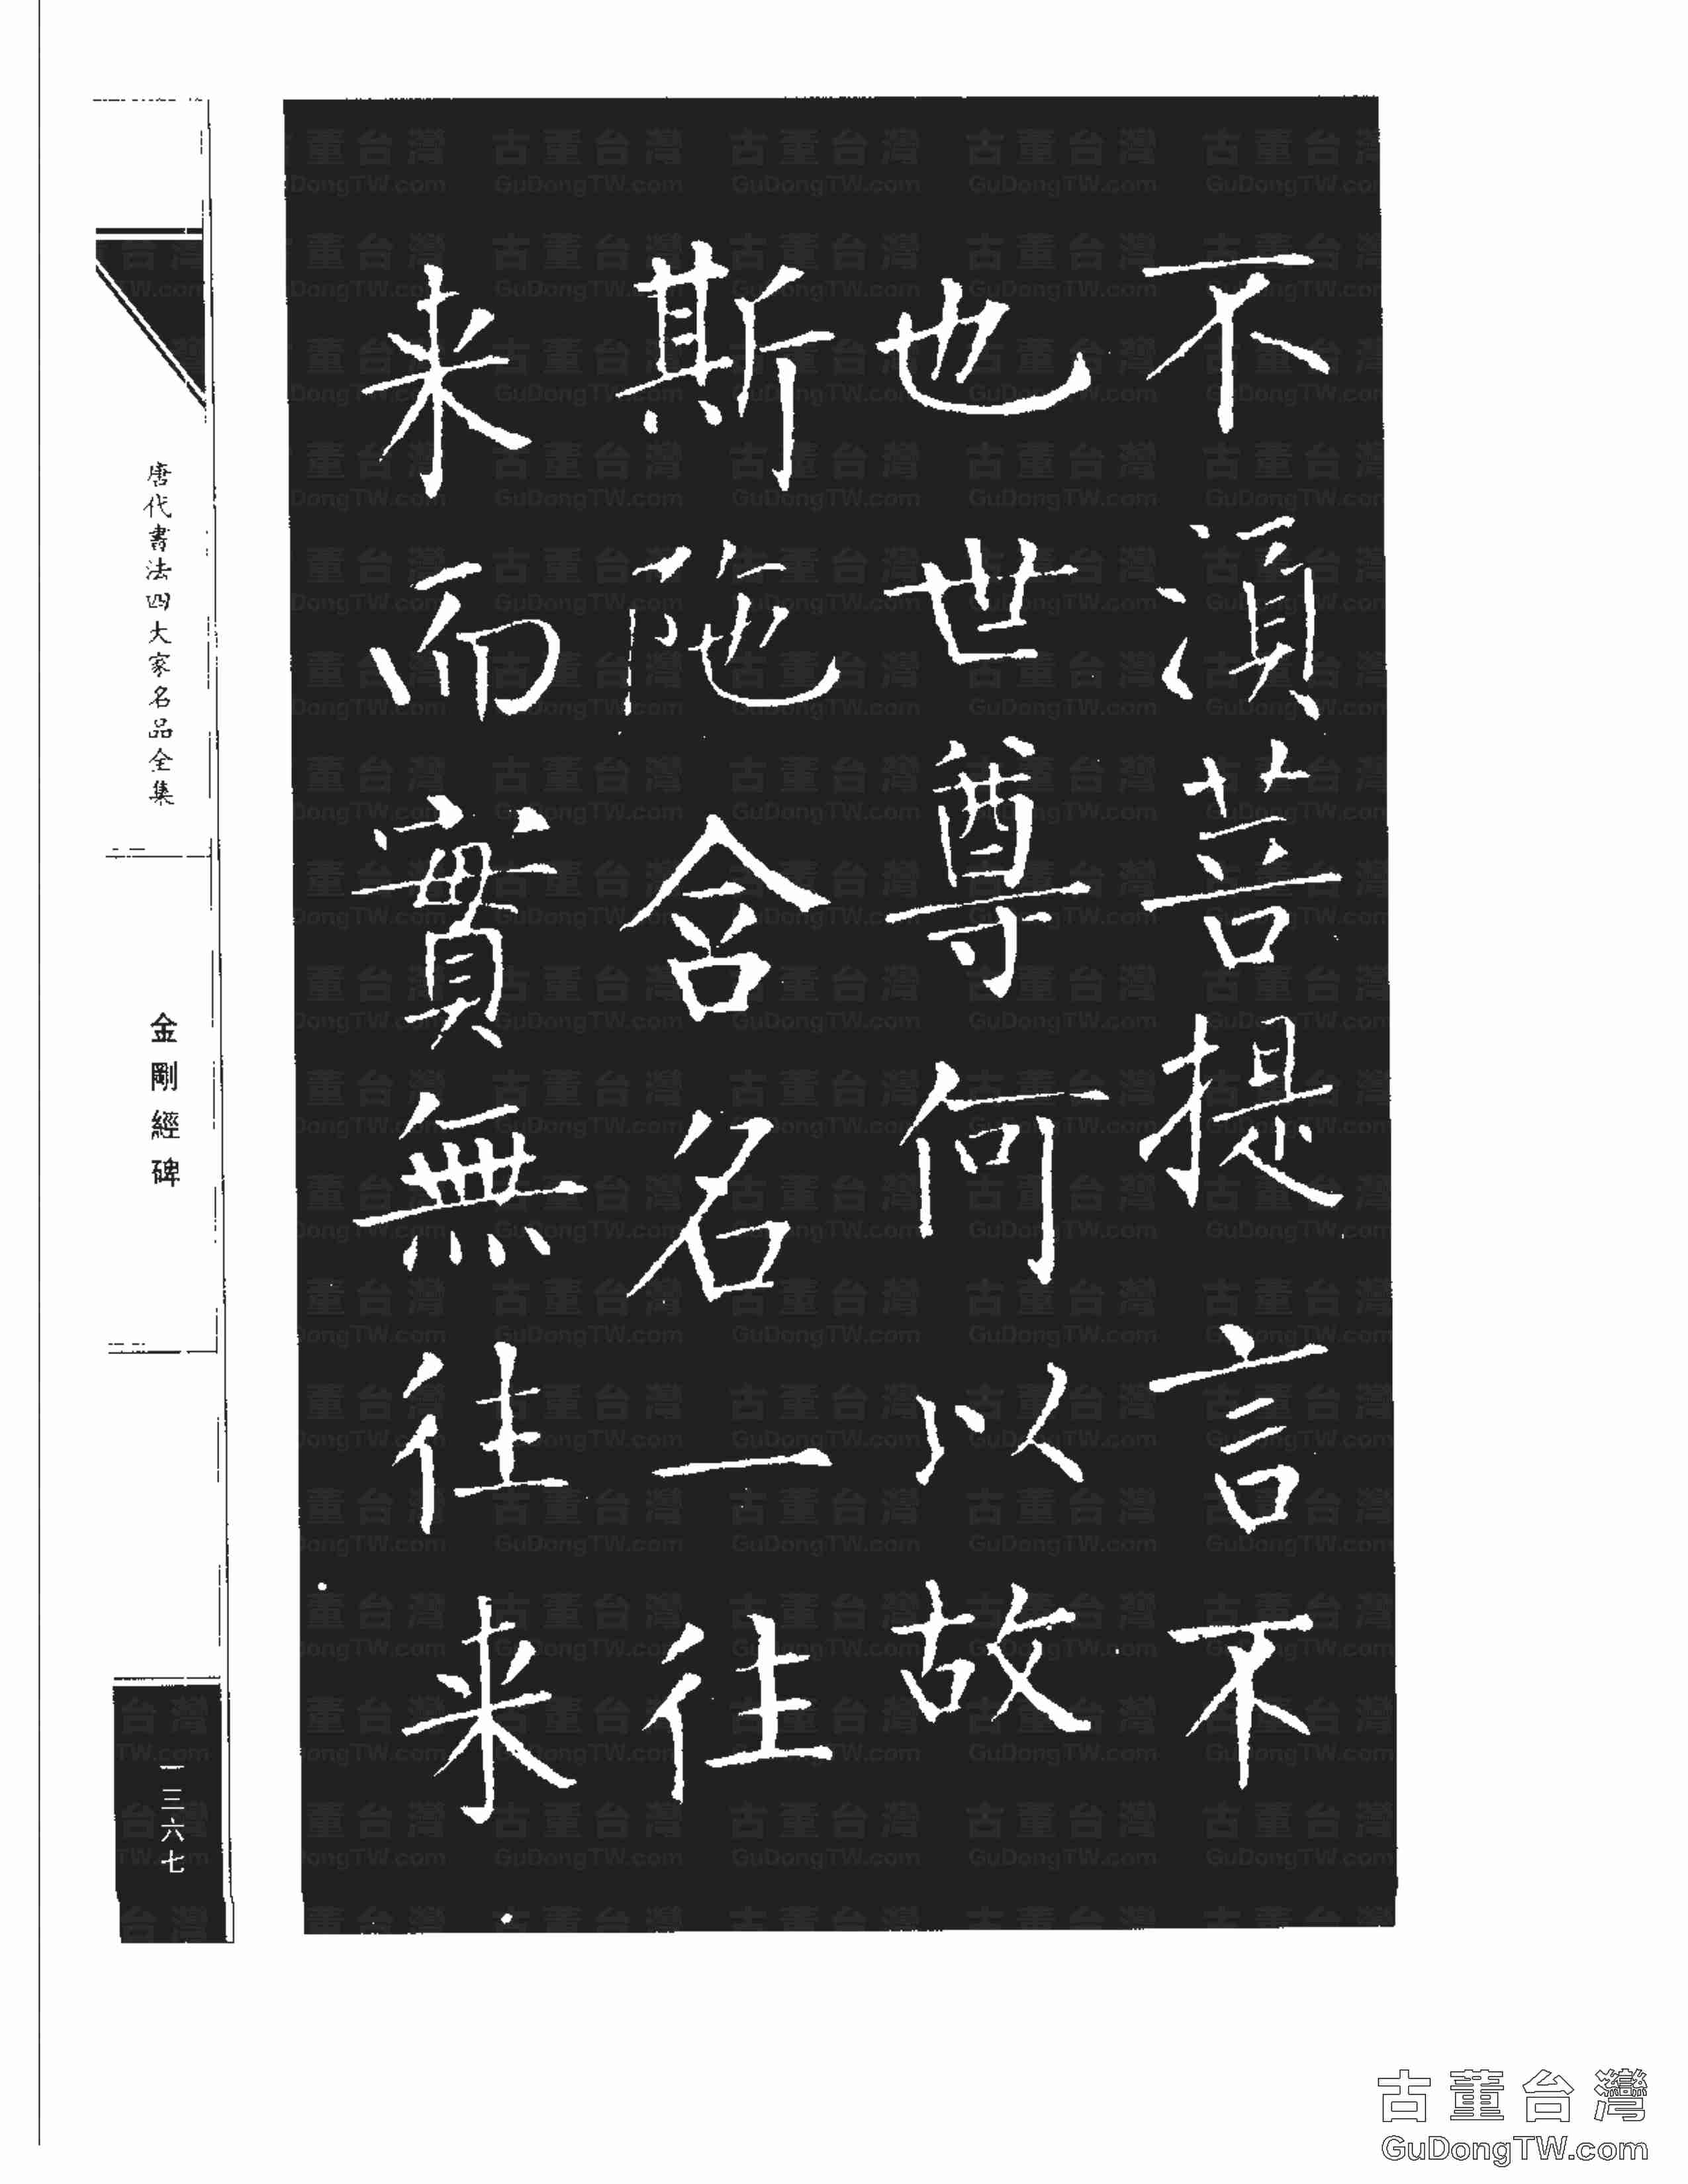 不湏菩提言不
也世尊何以故
斯陁含名一往
来而實無往来
唐代書法四大家名品全集
金剛經碑
一三六七
古董台灣
GuDongTW.com